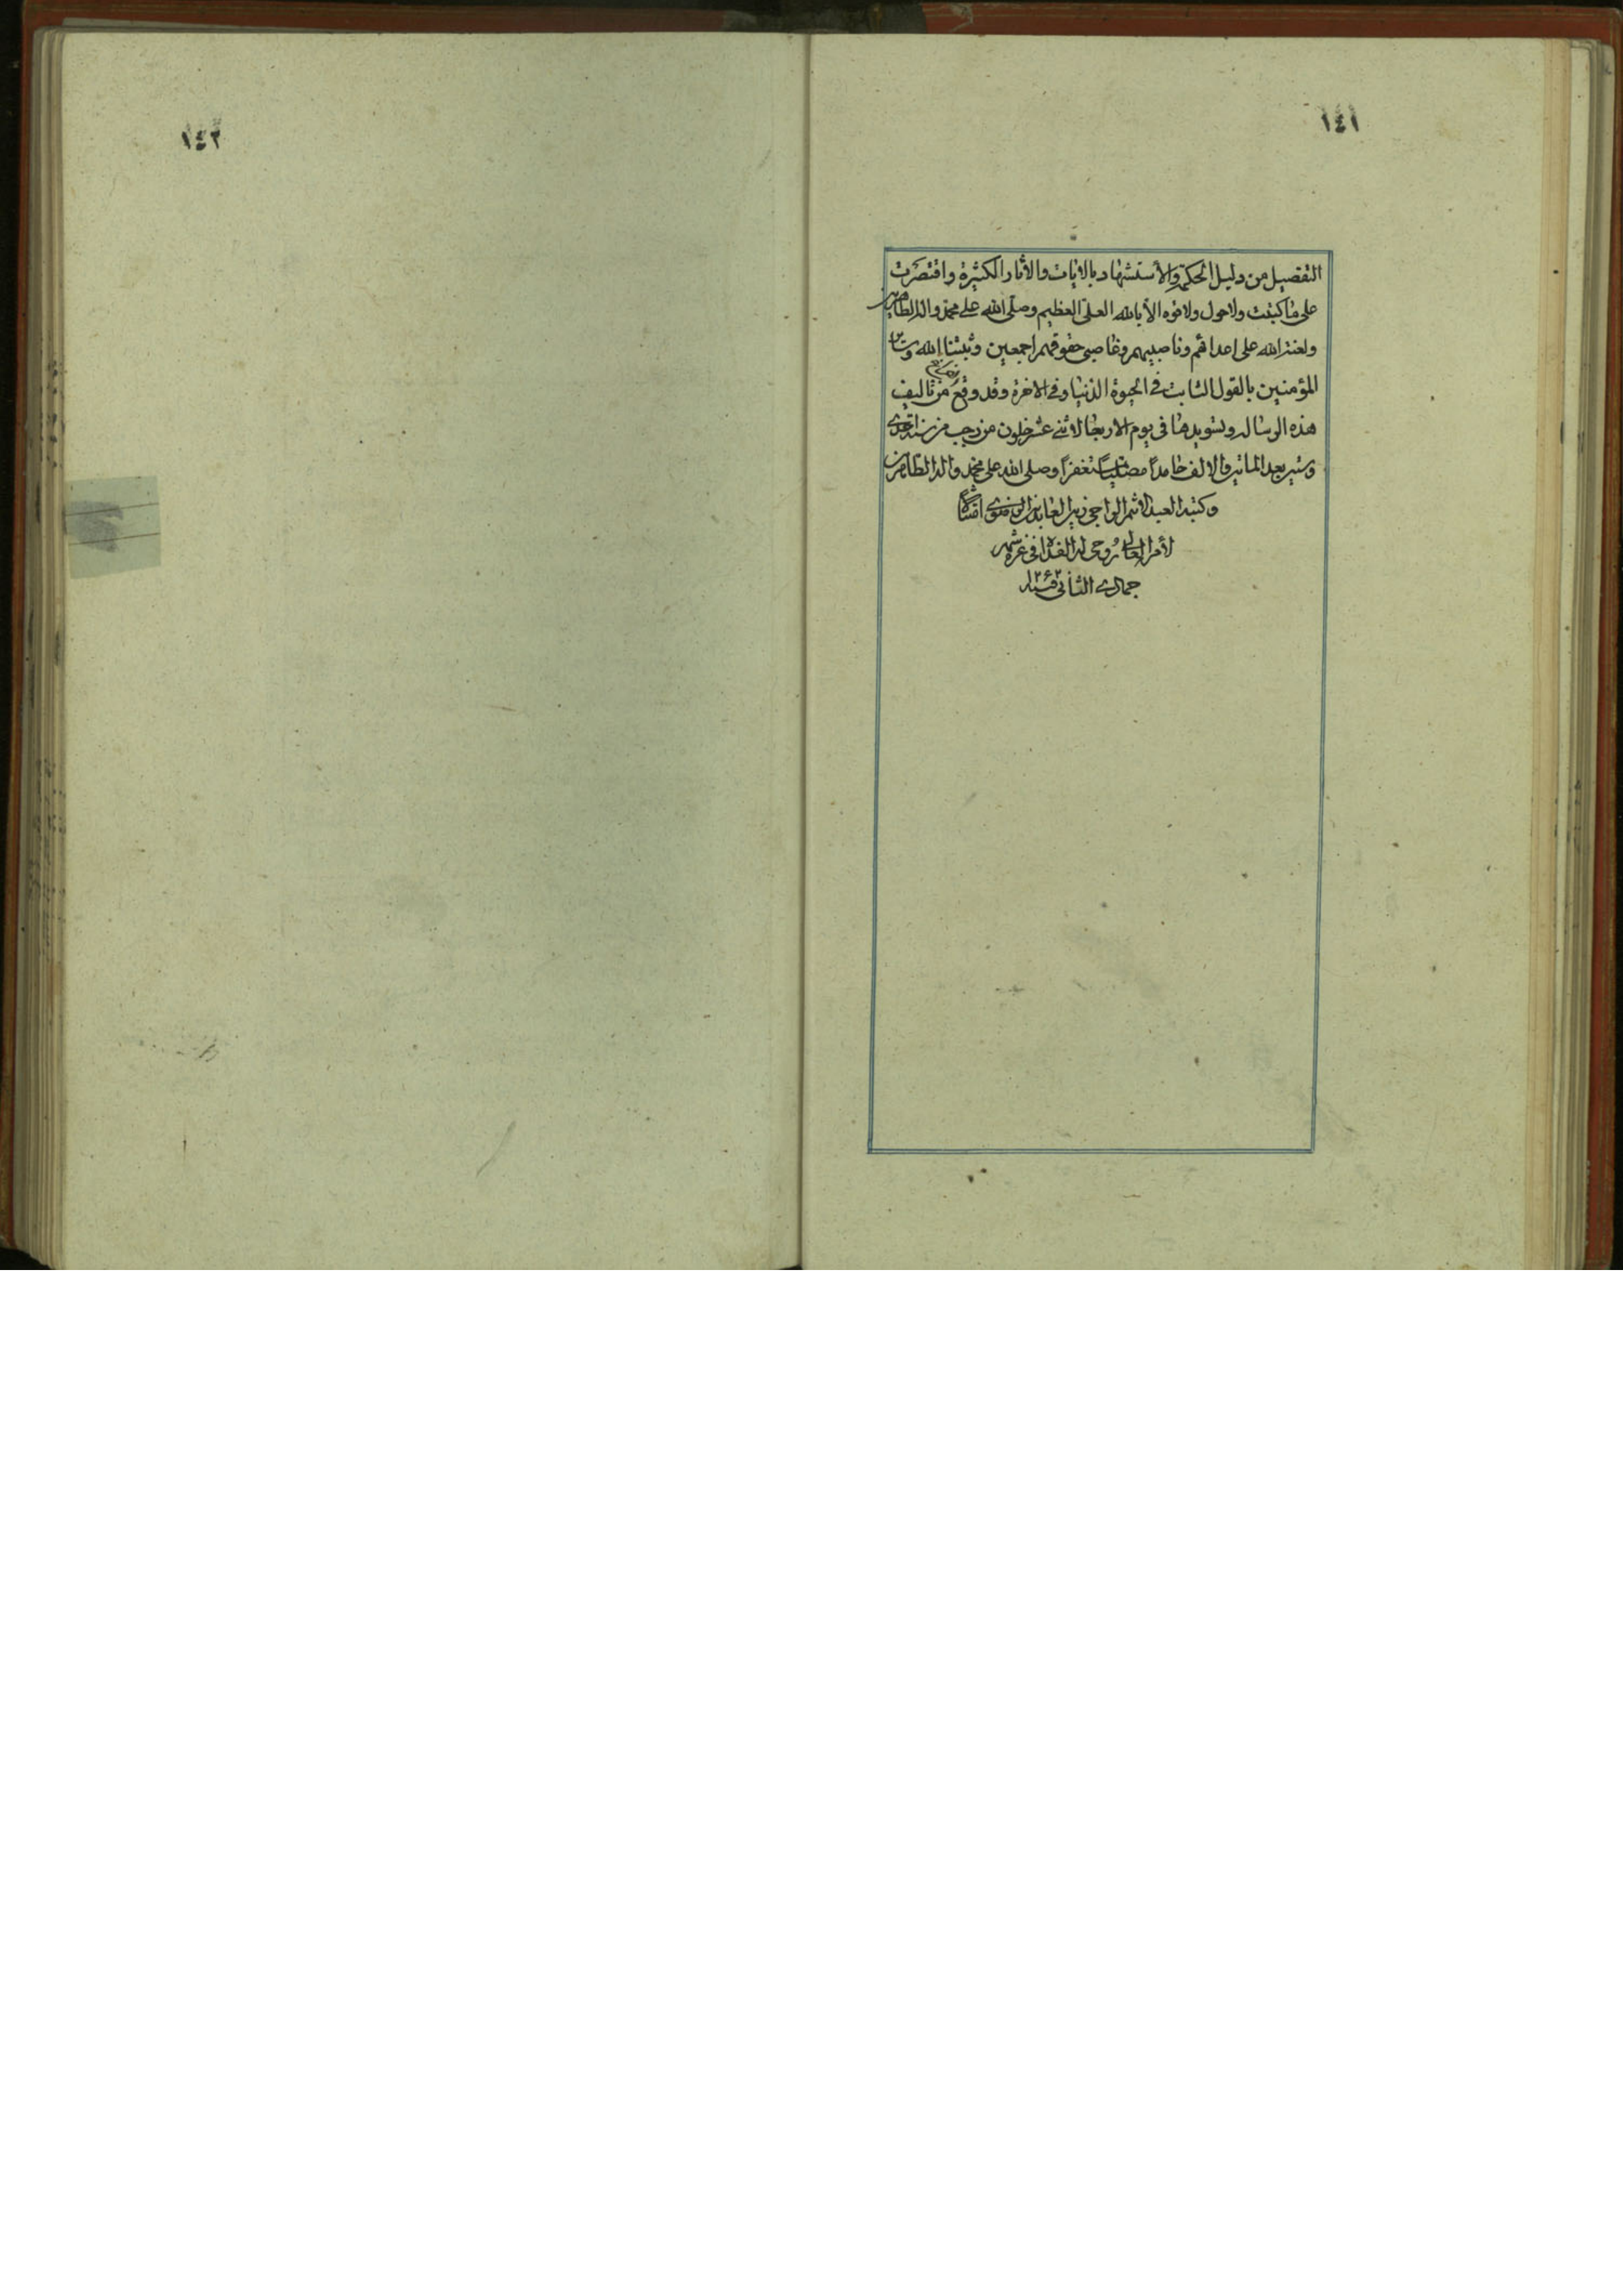 ١٤١
التفصيل من دليل الحكمة والاستشهاد بالايات والاثار الكثيرة واقتصرت
على ما كتبت ولا حول ولا قوه الا بالله العلى العظيم وصلى الله على محمد واله الطاهرين
ولعنة الله على اعدائهم وناصبيهم وغاصبى حقوقهم اجمعين وثبتنا الله وساير
المؤمنين بالقول الثابت فى الحيوة الدنيا وفى الاخرة وقد وقع من تاليف
هذه الرساله وتسويدها فى يوم الاربعا لاثنى عشر خلون من رجب من سنة احدى
وستين بعد الماتين والالف حامداً مصلياً مستغفراً وصلى الله على محمد واله الطاهرين
وكتبه العبد الاثم الراجى زين العابدين امتثالاً
لأمر العالى روحى له الفداء فى غرة شهر
جمادى الثانى
١٤٢